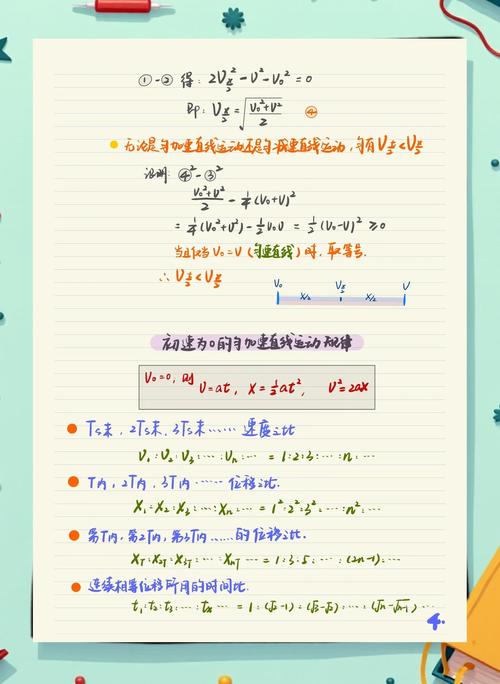 ①-②得: 2V_{x/2}² - V² - V₀² = 0
即: V_{x/2} = √((V₀²+V²)/2) ④
无论是匀加速直线运动还是匀减速直线运动, 均有 V_{t/2} < V_{x/2}
证明: ④² - ③²
(V₀²+V²)/2 - 1/4(V₀+V)²
= 1/4(V₀²+V²) - 1/2V₀V = 1/2(V₀-V)² ≥ 0
当且仅当 V₀ = V (匀速直线) 时, 取等号.
∴ V_{t/2} < V_{x/2}
V₀ V_{x/2} V
x/2 x/2
初速为0的匀加速直线运动规律
V₀=0, 则
V=at, X=½at², V²=2ax
Ts末, 2Ts末, 3Ts末…… 速度之比
V₁:V₂:V₃:…:Vₙ:… = 1:2:3:…:n:…
T内, 2T内, 3T内…… 位移之比.
X₁:X₂:X₃:…:Xₙ:… = 1²:2²:3²:…:n²:…
第T内, 第2T内, 第3T内……的位移之比.
X_T:X_{2T}:X_{3T}:…:X_{nT}:… = 1:3:5:…:(2n-1):…
连续相等位移所用的时间比.
t₁:t₂:t₃:…:tₙ:… = 1:(√2-1):(√3-√2):…:(√n-√(n-1))…
4.